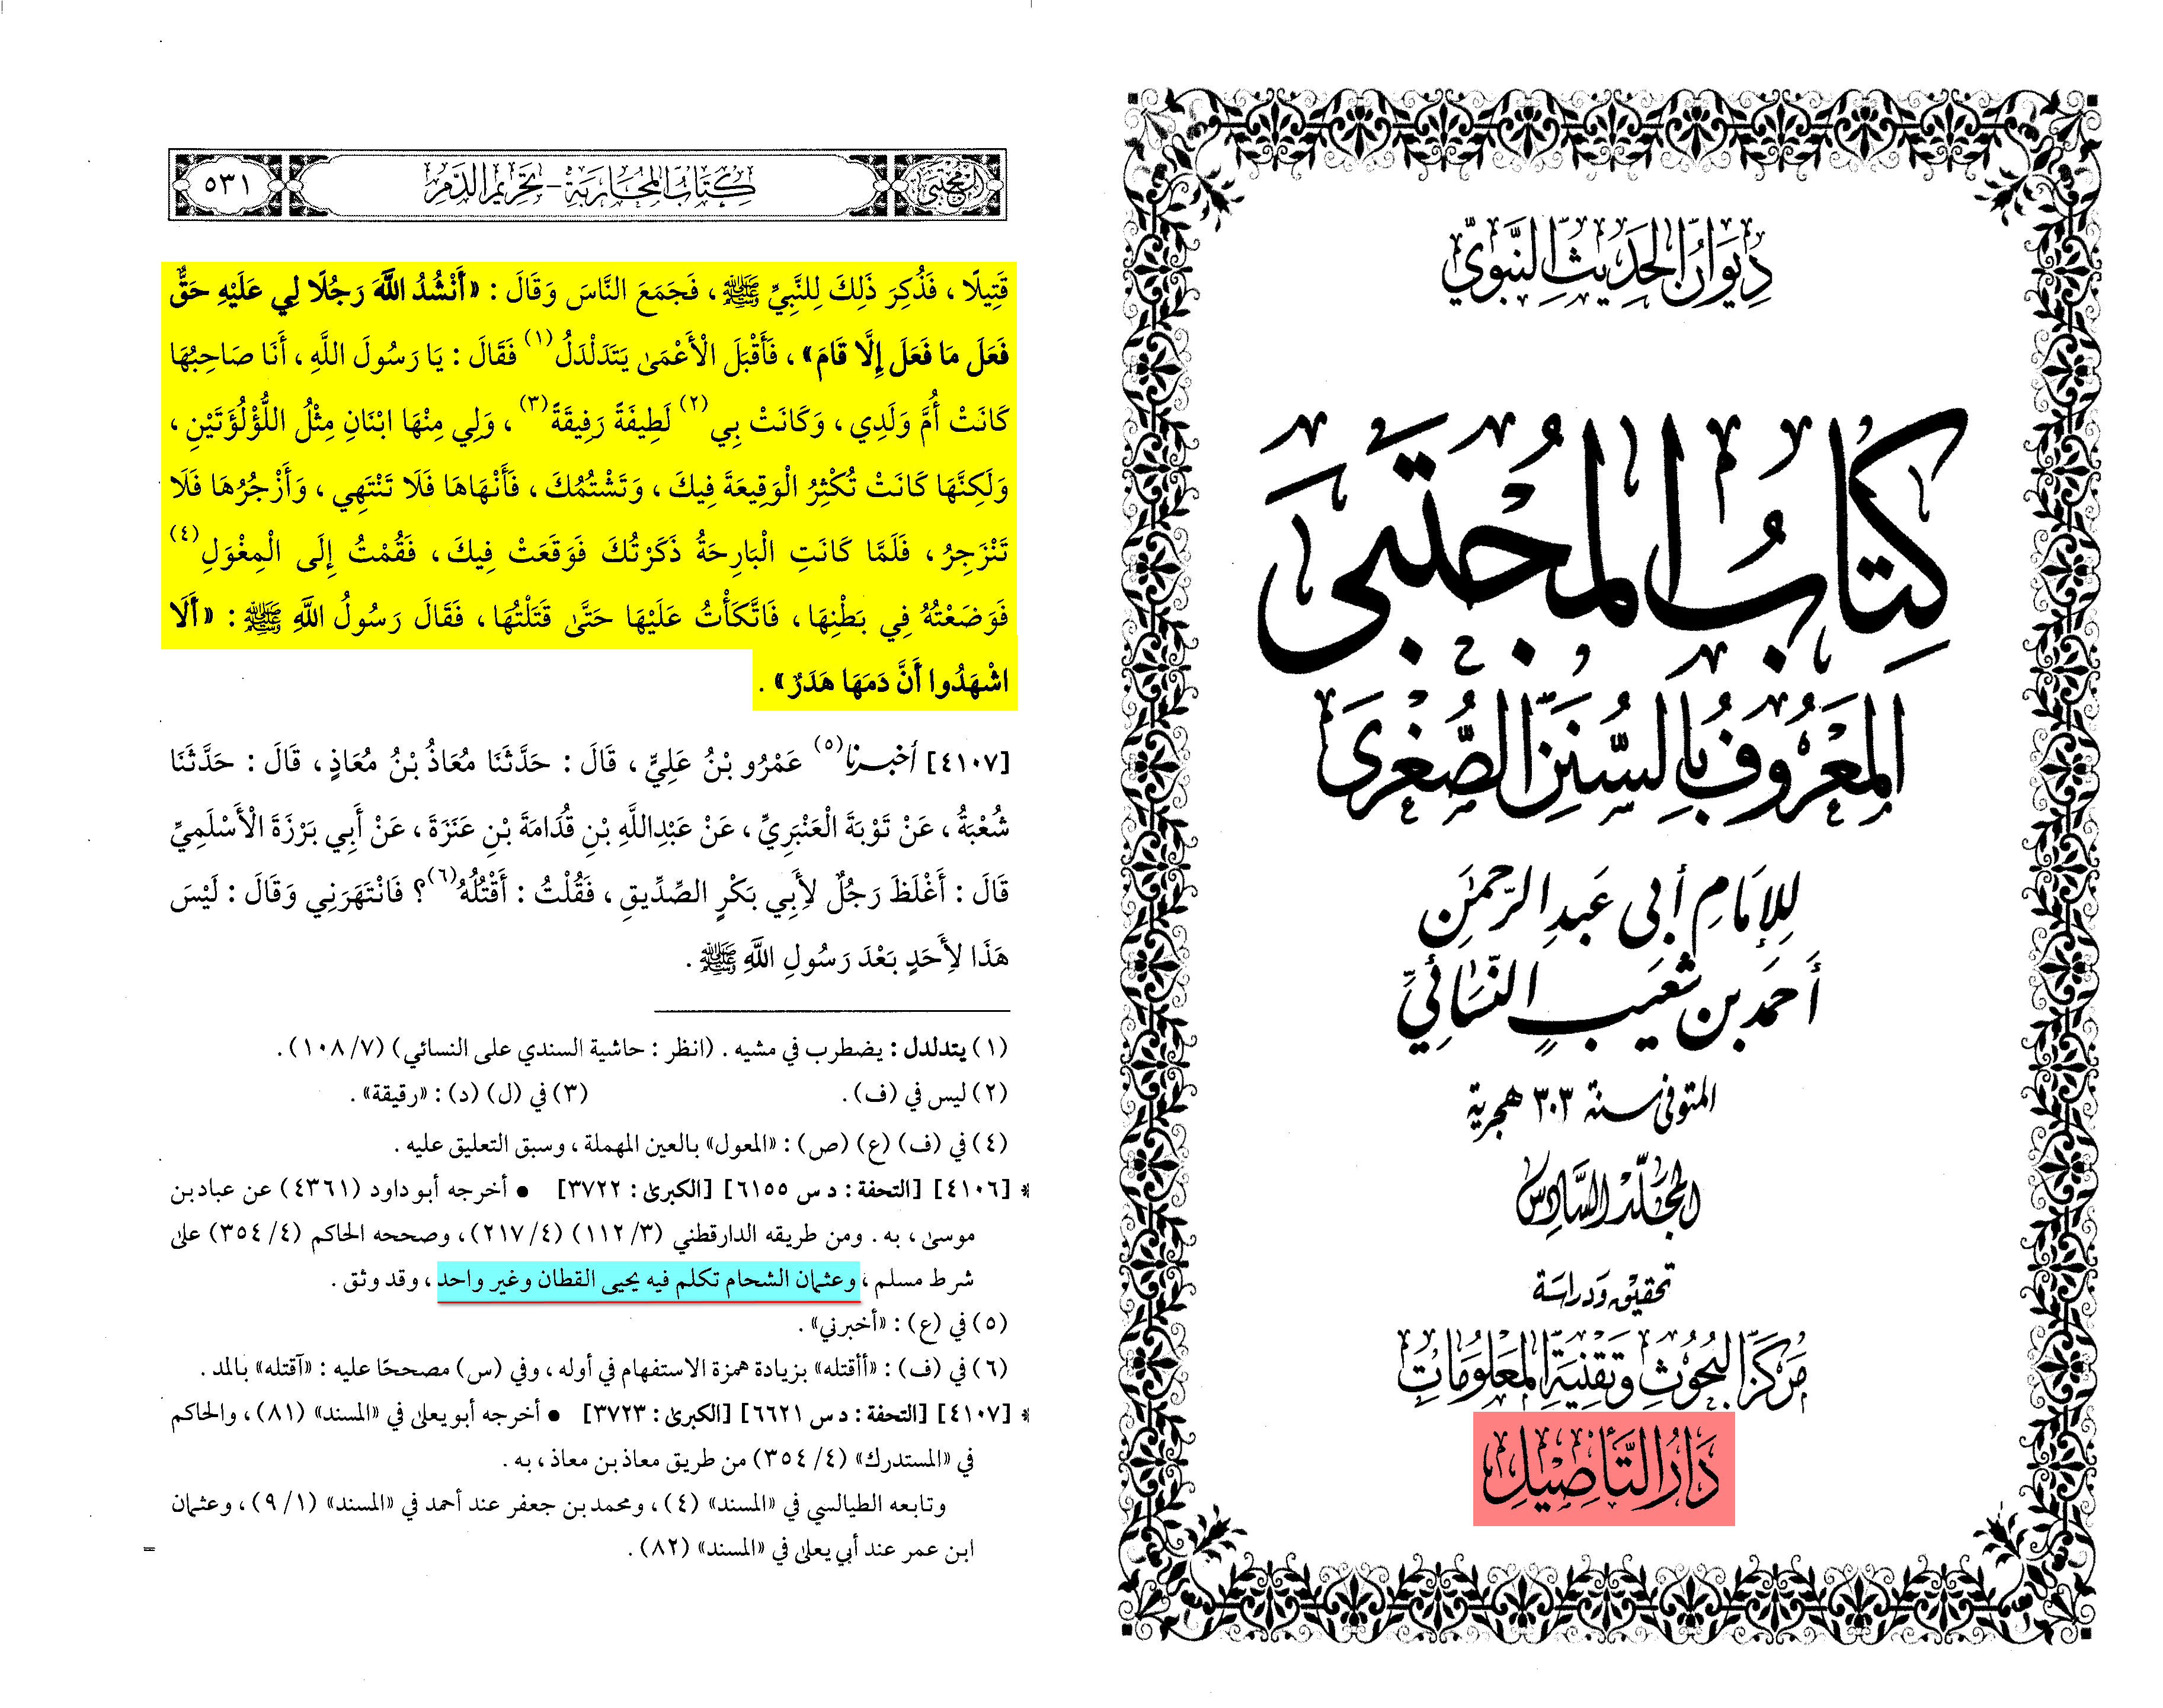 ديوان الحديث النبوي
كتاب المجتبى
المعروف بالسنن الصغرى
للإمام أبي عبد الرحمن
أحمد بن شعيب النسائي
المتوفى سنة ٣٠٣ هجرية
المجلد السادس
تحقيق ودراسة
مركز البحوث وتقنية المعلومات
دار التأصيل
المجتبى كتاب المحاربة - تحريم الدم ٥٣١
قَتِيلًا ، فَذُكِرَ ذَلِكَ لِلنَّبِيِّ ﷺ ، فَجَمَعَ النَّاسَ وَقَالَ : «أَنْشُدُ اللَّهَ رَجُلًا لِي عَلَيْهِ حَقٌّ
فَعَلَ مَا فَعَلَ إِلَّا قَامَ» ، فَأَقْبَلَ الْأَعْمَىٰ يَتَدَلْدَلُ(١) فَقَالَ : يَا رَسُولَ اللَّهِ ، أَنَا صَاحِبُهَا
كَانَتْ أُمَّ وَلَدِي ، وَكَانَتْ بِي(٢) لَطِيفَةً رَفِيقَةً(٣) ، وَلِي مِنْهَا ابْنَانِ مِثْلُ اللُّؤْلُؤَتَيْنِ ،
وَلَكِنَّهَا كَانَتْ تُكْثِرُ الْوَقِيعَةَ فِيكَ ، وَتَشْتُمُكَ ، فَأَنْهَاهَا فَلَا تَنْتَهِي ، وَأَزْجُرُهَا فَلَا
تَنْزَجِرُ ، فَلَمَّا كَانَتِ الْبَارِحَةُ ذَكَرْتُكَ فَوَقَعَتْ فِيكَ ، فَقُمْتُ إِلَى الْمِغْوَلِ(٤)
فَوَضَعْتُهُ فِي بَطْنِهَا ، فَاتَّكَأْتُ عَلَيْهَا حَتَّىٰ قَتَلْتُهَا ، فَقَالَ رَسُولُ اللَّهِ ﷺ : «أَلَا
اشْهَدُوا أَنَّ دَمَهَا هَدَرٌ» .
[٤١٠٧] أخبرنا(٥) عَمْرُو بْنُ عَلِيٍّ ، قَالَ : حَدَّثَنَا مُعَاذُ بْنُ مُعَاذٍ ، قَالَ : حَدَّثَنَا
شُعْبَةُ ، عَنْ تَوْبَةَ الْعَنْبَرِيِّ ، عَنْ عَبْدِاللَّهِ بْنِ قُدَامَةَ بْنِ عَنَزَةَ ، عَنْ أَبِي بَرْزَةَ الْأَسْلَمِيِّ
قَالَ : أَغْلَظَ رَجُلٌ لِأَبِي بَكْرٍ الصِّدِّيقِ ، فَقُلْتُ : أَقْتُلُهُ(٦)؟ فَانْتَهَرَنِي وَقَالَ : لَيْسَ
هَذَا لِأَحَدٍ بَعْدَ رَسُولِ اللَّهِ ﷺ .
(١) يتدلدل : يضطرب في مشيه . (انظر : حاشية السندي على النسائي) (٧/ ١٠٨) .
(٢) ليس في (ف) . (٣) في (ل) (د) : «رقيقة» .
(٤) في (ف) (ع) (ص) : «المعول» بالعين المهملة ، وسبق التعليق عليه .
* [٤١٠٦] [التحفة : د س ٦١٥٥] [الكبرىٰ : ٣٧٢٢] ● أخرجه أبو داود (٤٣٦١) عن عباد بن
موسىٰ ، به . ومن طريقه الدارقطني (٣/ ١١٢) (٤/ ٢١٧) ، وصححه الحاكم (٤/ ٣٥٤) علىٰ
شرط مسلم ، وعثمان الشحام تكلم فيه يحيى القطان وغير واحد ، وقد وثق .
(٥) في (ع) : «أخبرني» .
(٦) في (ف) : «أأقتله» بزيادة همزة الاستفهام في أوله ، وفي (س) مصححًا عليه : «آقتله» بالمد .
* [٤١٠٧] [التحفة : د س ٦٦٢١] [الكبرىٰ : ٣٧٢٣] ● أخرجه أبو يعلىٰ في «المسند» (٨١) ، والحاكم
في «المستدرك» (٤/ ٣٥٤) من طريق معاذ بن معاذ ، به .
وتابعه الطيالسي في «المسند» (٤) ، ومحمد بن جعفر عند أحمد في «المسند» (١/ ٩) ، وعثمان
ابن عمر عند أبي يعلىٰ في «المسند» (٨٢) .
=